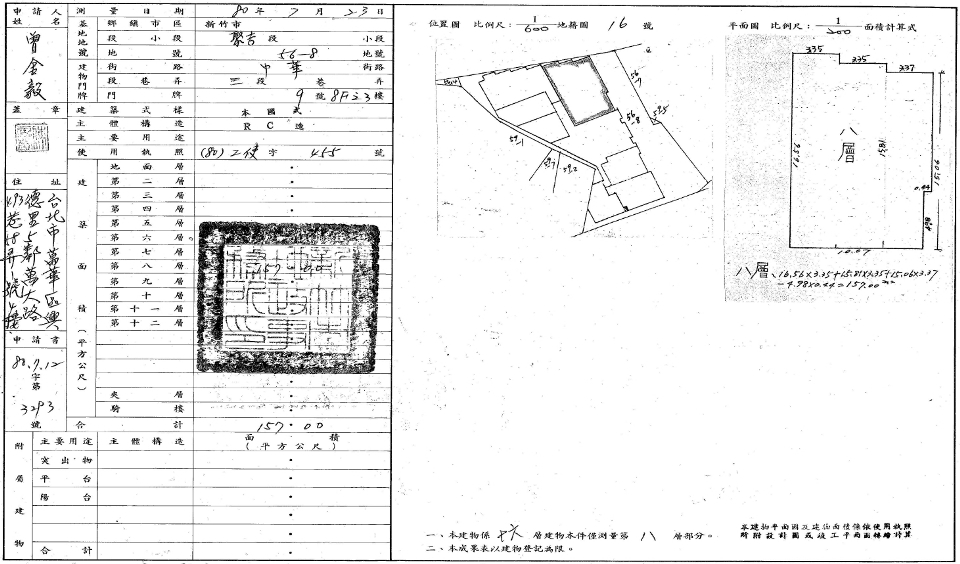 申請人姓名
曾金毅
蓋章
住址
台北市萬華區興
德里5鄰萬大路
申請書
80.7.12
字第
3293
號
測量日期 80年7月23日
基地地號
鄉鎮市區 新竹市
段小段 段 小段
地號 56-8 地號
建物門牌
街路 中華 街路
段巷弄 三段 巷 弄
門牌 9號8F之3樓
建築式樣 本國式
主體構造 RC造
主要用途
使用執照 (80)工使字 455 號
建築面積(平方公尺)
地面層
第二層
第三層
第四層
第五層
第六層
第七層
第八層 157.00
第九層
第十層
第十一層
第十二層
夾層
騎樓
合計 157.00
附屬建物
主要用途 主體構造 面積(平方公尺)
突出物
平台
陽台
合計
位置圖 比例尺:1/600 地籍圖 16 號
56-7
595
56-8
59-1
59-2
平面圖 比例尺:1/200 面積計算式
3.35
3.35
3.37
八層
16.56
15.81
15.06
0.44
4.98
10.07
八層 16.56×3.35+15.81×3.35+15.06×3.37
-4.98×0.44=157.00m²
一、本建物係 層建物本件僅測量第 八 層部分。
二、本成果表以建物登記為限。
本建物平面圖及建物面積係依使用執照
所附設計圖或竣工平面圖轉繪計算